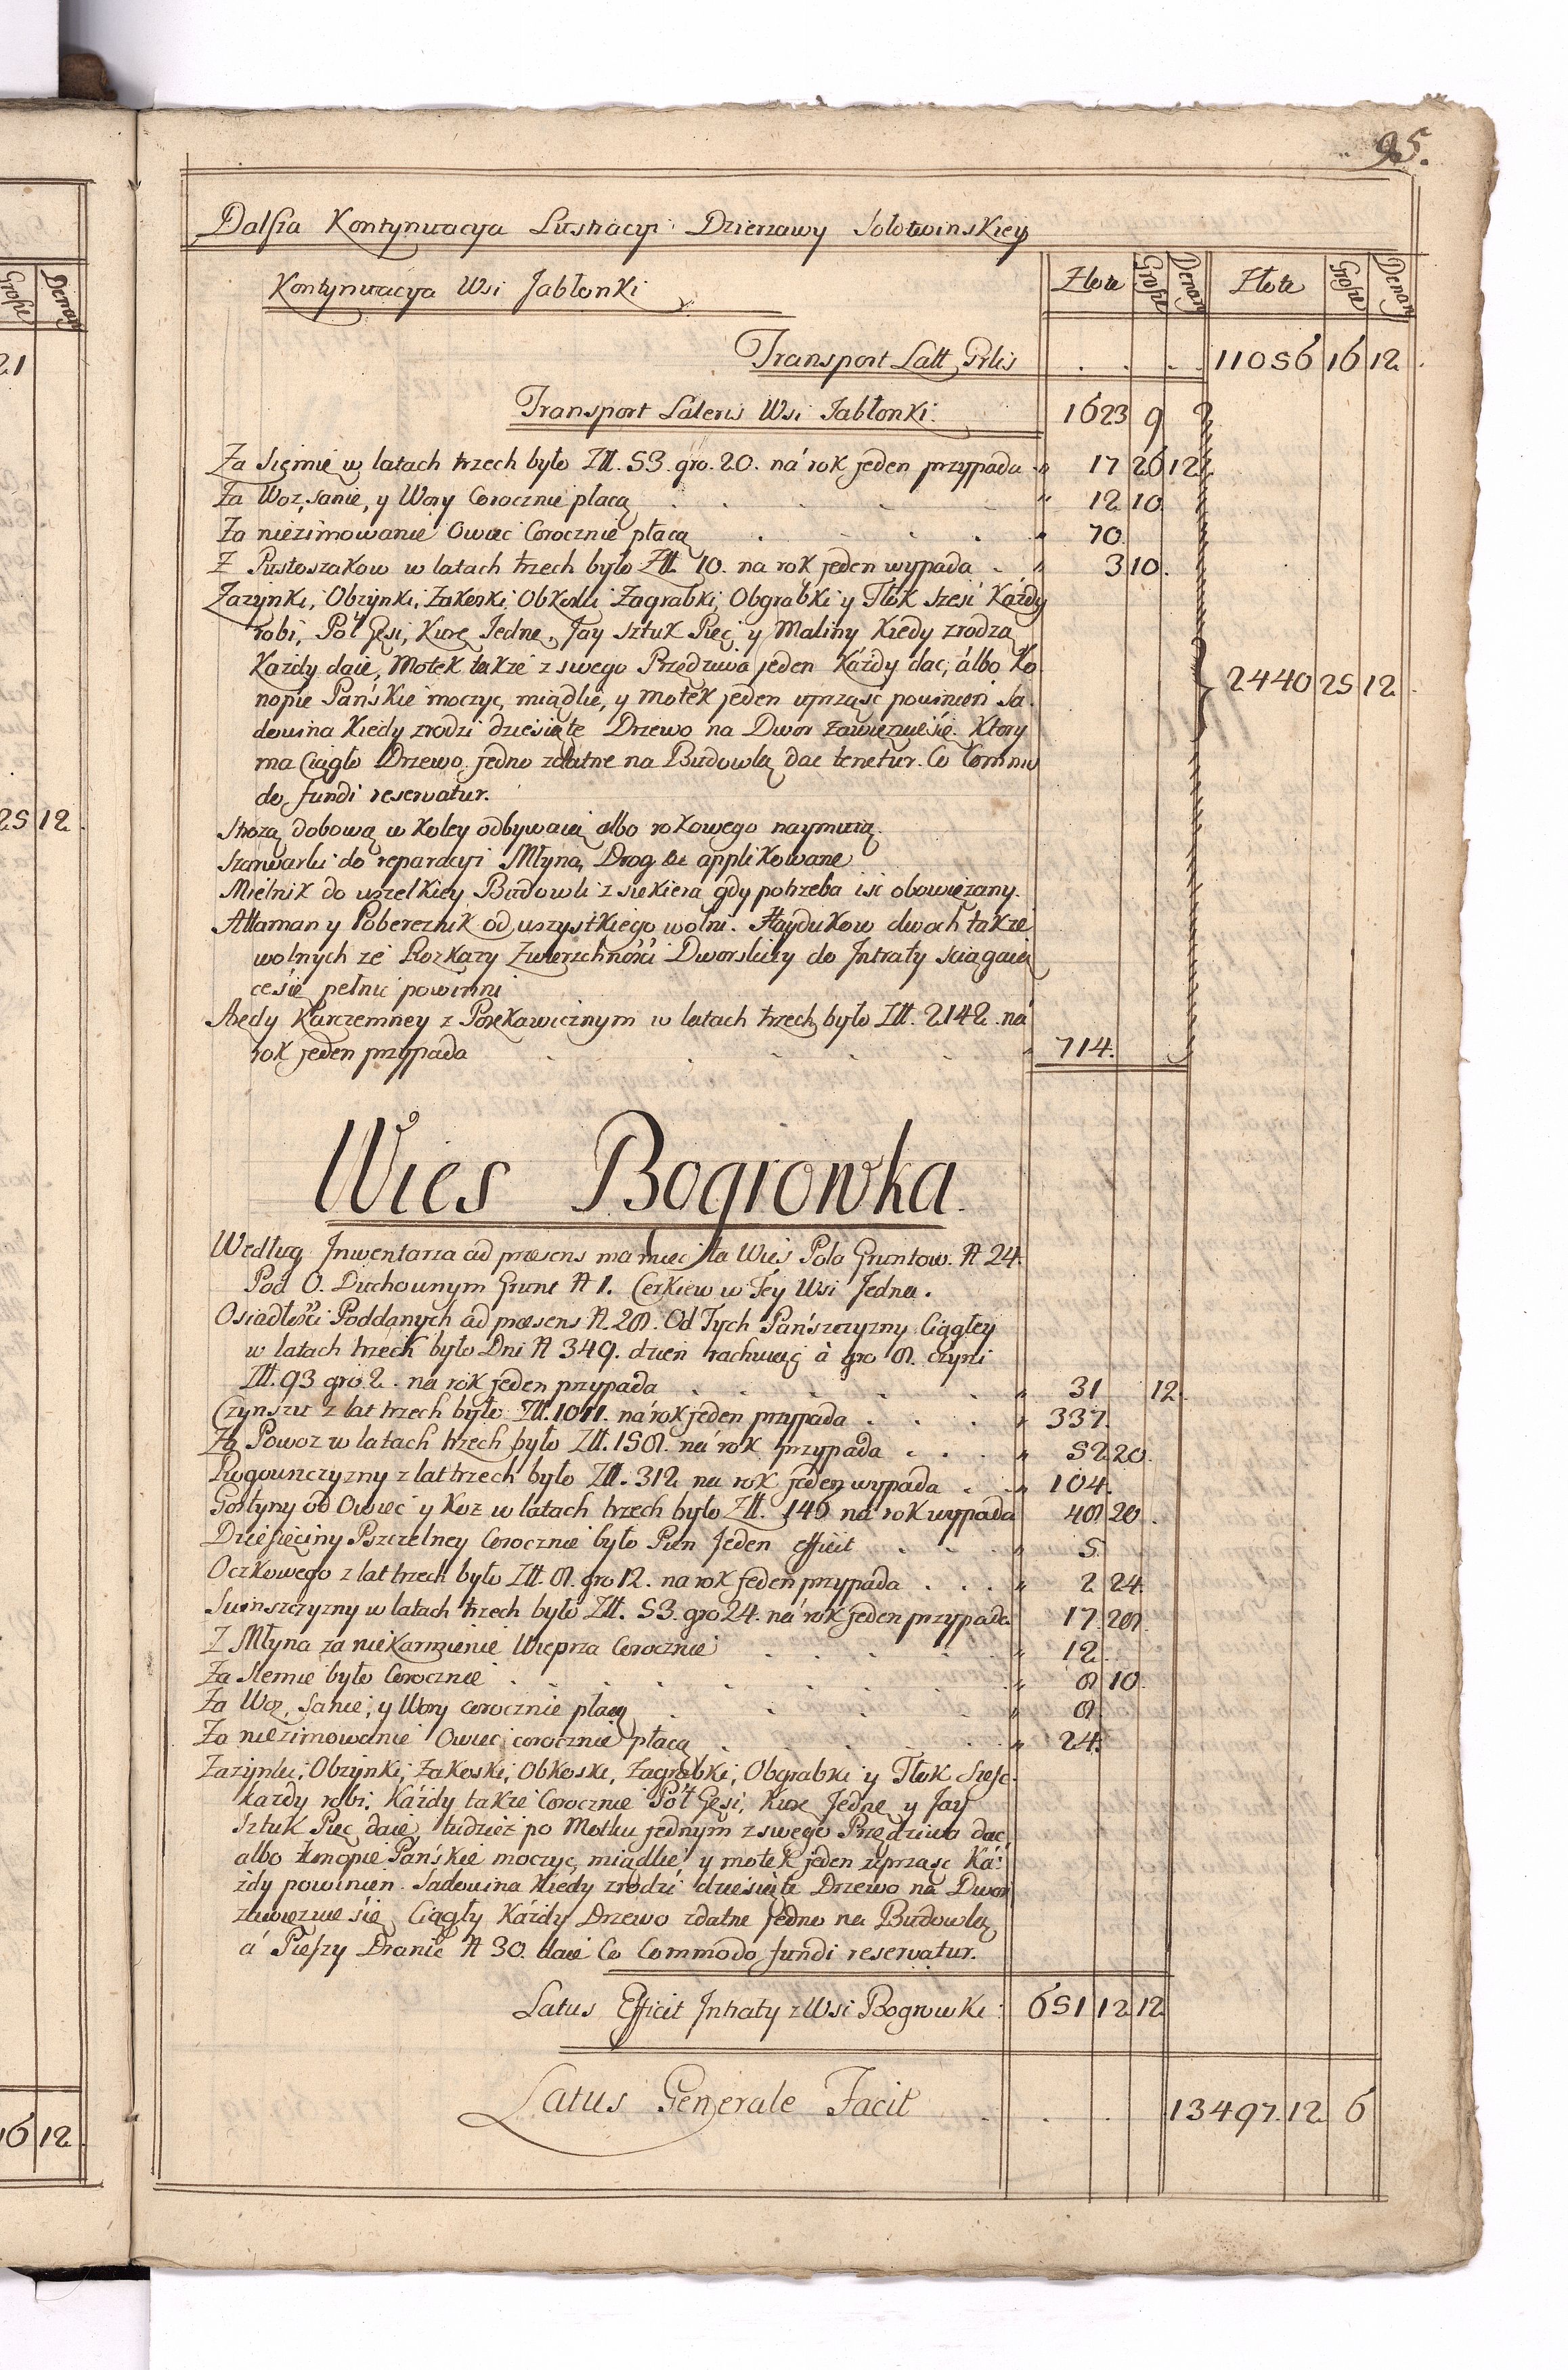 95.
Dalsza Kontynuacya Lustracyi Dzierzawy Sołotwinskiey
Kontynuacya Wsi Jabłonki
Złote Grosze Denar Złote Grosze Denar
Transport Latt Prlis . . . 11056 16 12
Transport Lateris Wsi Jabłonki. 1623 9
Za Siemie w latach trzech było Złł. 53. gro. 20. ná rok jeden przypada " 17 26 12
Za Woz, sanie, y Wory Corocznie płacą " 12 10.
Za niezimowanie Owiec Corocznie płacą " 70.
Z Pustoszakow w latach trzech było Złł. 10. na rok jeden wypada " 3 10.
Zazynki, Obzynki, Zakoski, Obkoski Zagrabki, Obgrabki y Tłok szesć Káżdy
robi, Poł Gęsi, Kurę Jednę, Jay sztuk Pięc y Maliny Kiedy zrodzą
Każdy daie, Motek także z swego Przędziwa jeden Każdy dac, álbo Ko
nopie Pańskie moczyc, miądlic, y motek jeden uprząsc powinien Sa
dowina Kiedy zrodzi dziesiąte Drzewo na Dwor zawięzuie się. Ktory
ma Ciągło Drzewo jedno zdatne na Budowlą dac tenetur. Co Commo
do fundi reservatur.
2440 25 12
Strożą dobową w Koley odbywaią albo rokowego naymuią.
Szarwarki do reparacyi Młyna, Drog &c applikowane
Mielnik do wszelkiey Budowli z siekierą gdy potrzeba isc obowięzany.
Attaman y Pobereznik od wszystkiego wolni. Haydukow dwoch takze
wolnych ze Rozkazy Zwierzchności Dworskiey do Intraty sciągaią
ce się pełnic powinni
Aredy Karczemney z Porękawicznym w latach trzech było Złł. 2142. ná
rok jeden przypada " 714.
Wies Bogrowka
Według Inwentarza ad præsens ma miec ta Wieś Pola Gruntow. N 24.
Pod O. Duchownym Grunt N 1. Cerkiew w Tey Wsi Jedna.
Osiadłości Poddanych ad præsens N. 28. Od Tych Pańszczyzny Ciągłey
w latach trzech było Dni N 349. dzien rachuiąc à gro 8. czyni
Złł. 93 gro 2. ná rok jeden przypada " 31 12.
Czynszu z lat trzech było Złł. 1011. ná rok jeden przypada " 337.
Za Powoz w latach trzech było Złł. 158. ná rok przypada " 52 20.
Rogowszczyzny z lat trzech było Złł. 312 na rok jeden wypada " 104.
Gostyny od Owiec y Koz w latach trzech było Złł. 146 ná rok wypada 48 20.
Dziesięciny Pszczelney Corocznie było Pien Jeden efficit " 5.
Oczkowego z lat trzech było Złł. 8. gro 12. na rok jeden przypada " 2 24.
Swinszczyzny w latach trzech było Złł. 53. gro 24. ná rok jeden przypada 17. 28.
Z Młyna za niekarmienie Wieprza Corocznie " 12.
Za Siemie było Corocznie " 8 10.
Za Woz, Sanie, y Wory corocznie płacą " 8.
Za niezimowanie Owiec corocznie płacą " 24.
Zazynki, Obzynki, Zakoski, Obkoski, Zagrabki, Obgrabki y Tłok Szesc
każdy robi. Káżdy takze Corocznie Poł Gęsi, Kurę Jednę y Jay
Sztuk Pięc daie, tudzież po Motku jednym z swego Przędziwa dac,
albo Konopie Pańskie moczyc, miądlic y motek jeden uprząsc Ká:
żdy powinien. Sadowina Kiedy zrodzi dziesiąte Drzewo na Dwor
zawięzuie się, Ciągły Káżdy Drzewo zdatne jedno na Budowlą,
á Pieszy Dranic N 30. daie Co Commodo fundi reservatur.
Latus Efficit Intraty z Wsi Bogrowki: 651 12 12
Latus Generale Facit . . . 13497. 12 6